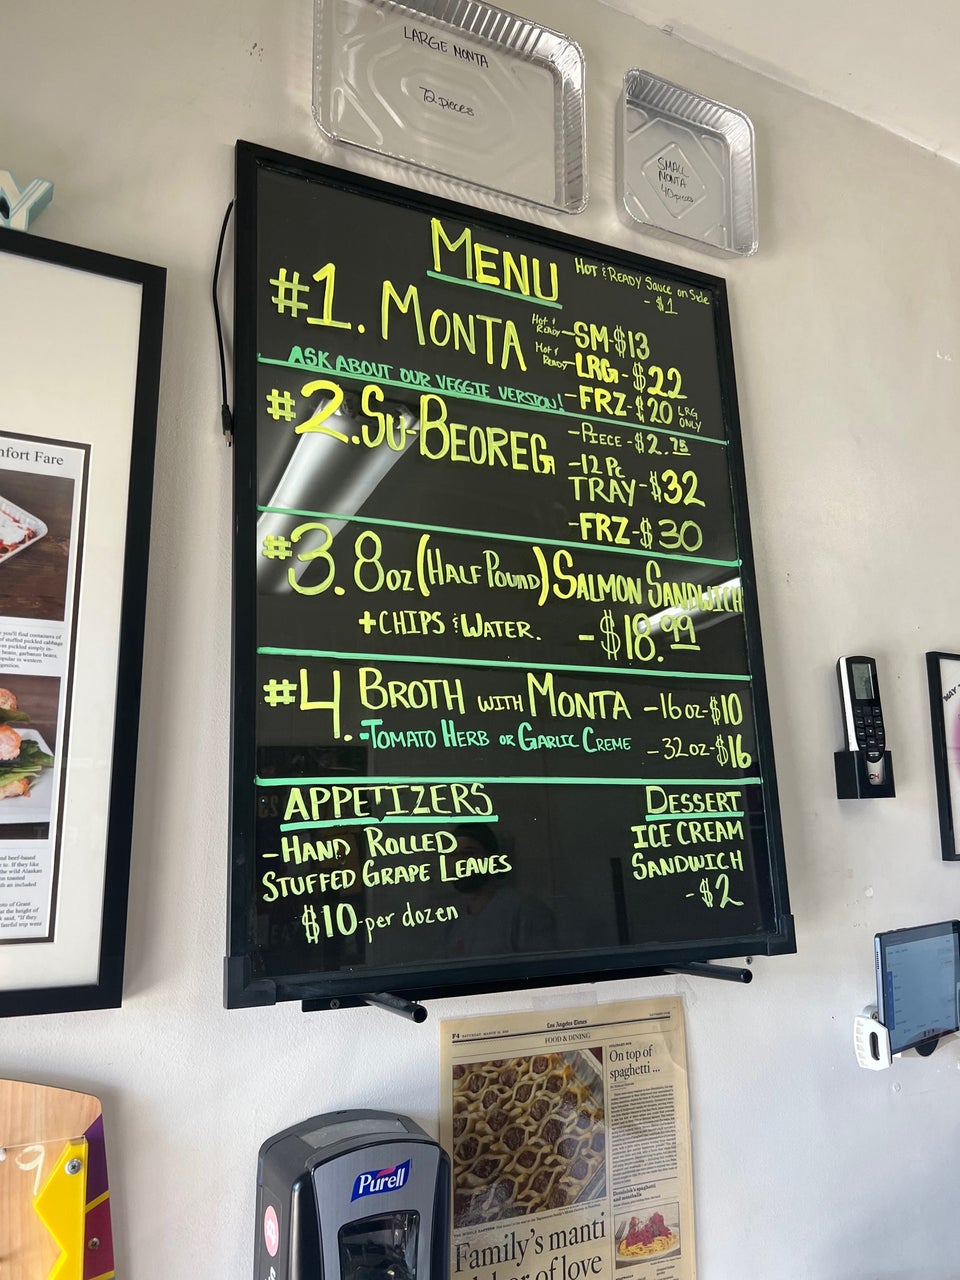 LARGE MONTA
72 pieces
SMALL
MONTA
40 pieces
Y
MENU
HOT & READY SAUCE ON SIDE
- $1
#1. MONTA
HOT & READY -SM-$13
HOT & READY -LRG-$22
-FRZ-$20 LRG ONLY
ASK ABOUT OUR VEGGIE VERSION!
#2. SU-BEOREG
-PIECE-$2.75
-12 PC
TRAY-$32
-FRZ-$30
#3. 8oz (HALF POUND) SALMON SANDWICH
+CHIPS & WATER. -$18.99
#4. BROTH WITH MONTA -16oz-$10
-TOMATO HERB OR GARLIC CREME -32oz-$16
APPETIZERS
-HAND ROLLED
STUFFED GRAPE LEAVES
$10-per dozen
DESSERT
ICE CREAM
SANDWICH
-$2
nfort Fare
you'll find containers of
of stuffed pickled cabbage
MAY
F4
Los Angeles Times
FOOD & DINING
On top of
spaghetti ...
Dominick's spaghetti
and meatballs
Family's manti
of love
Purell
9